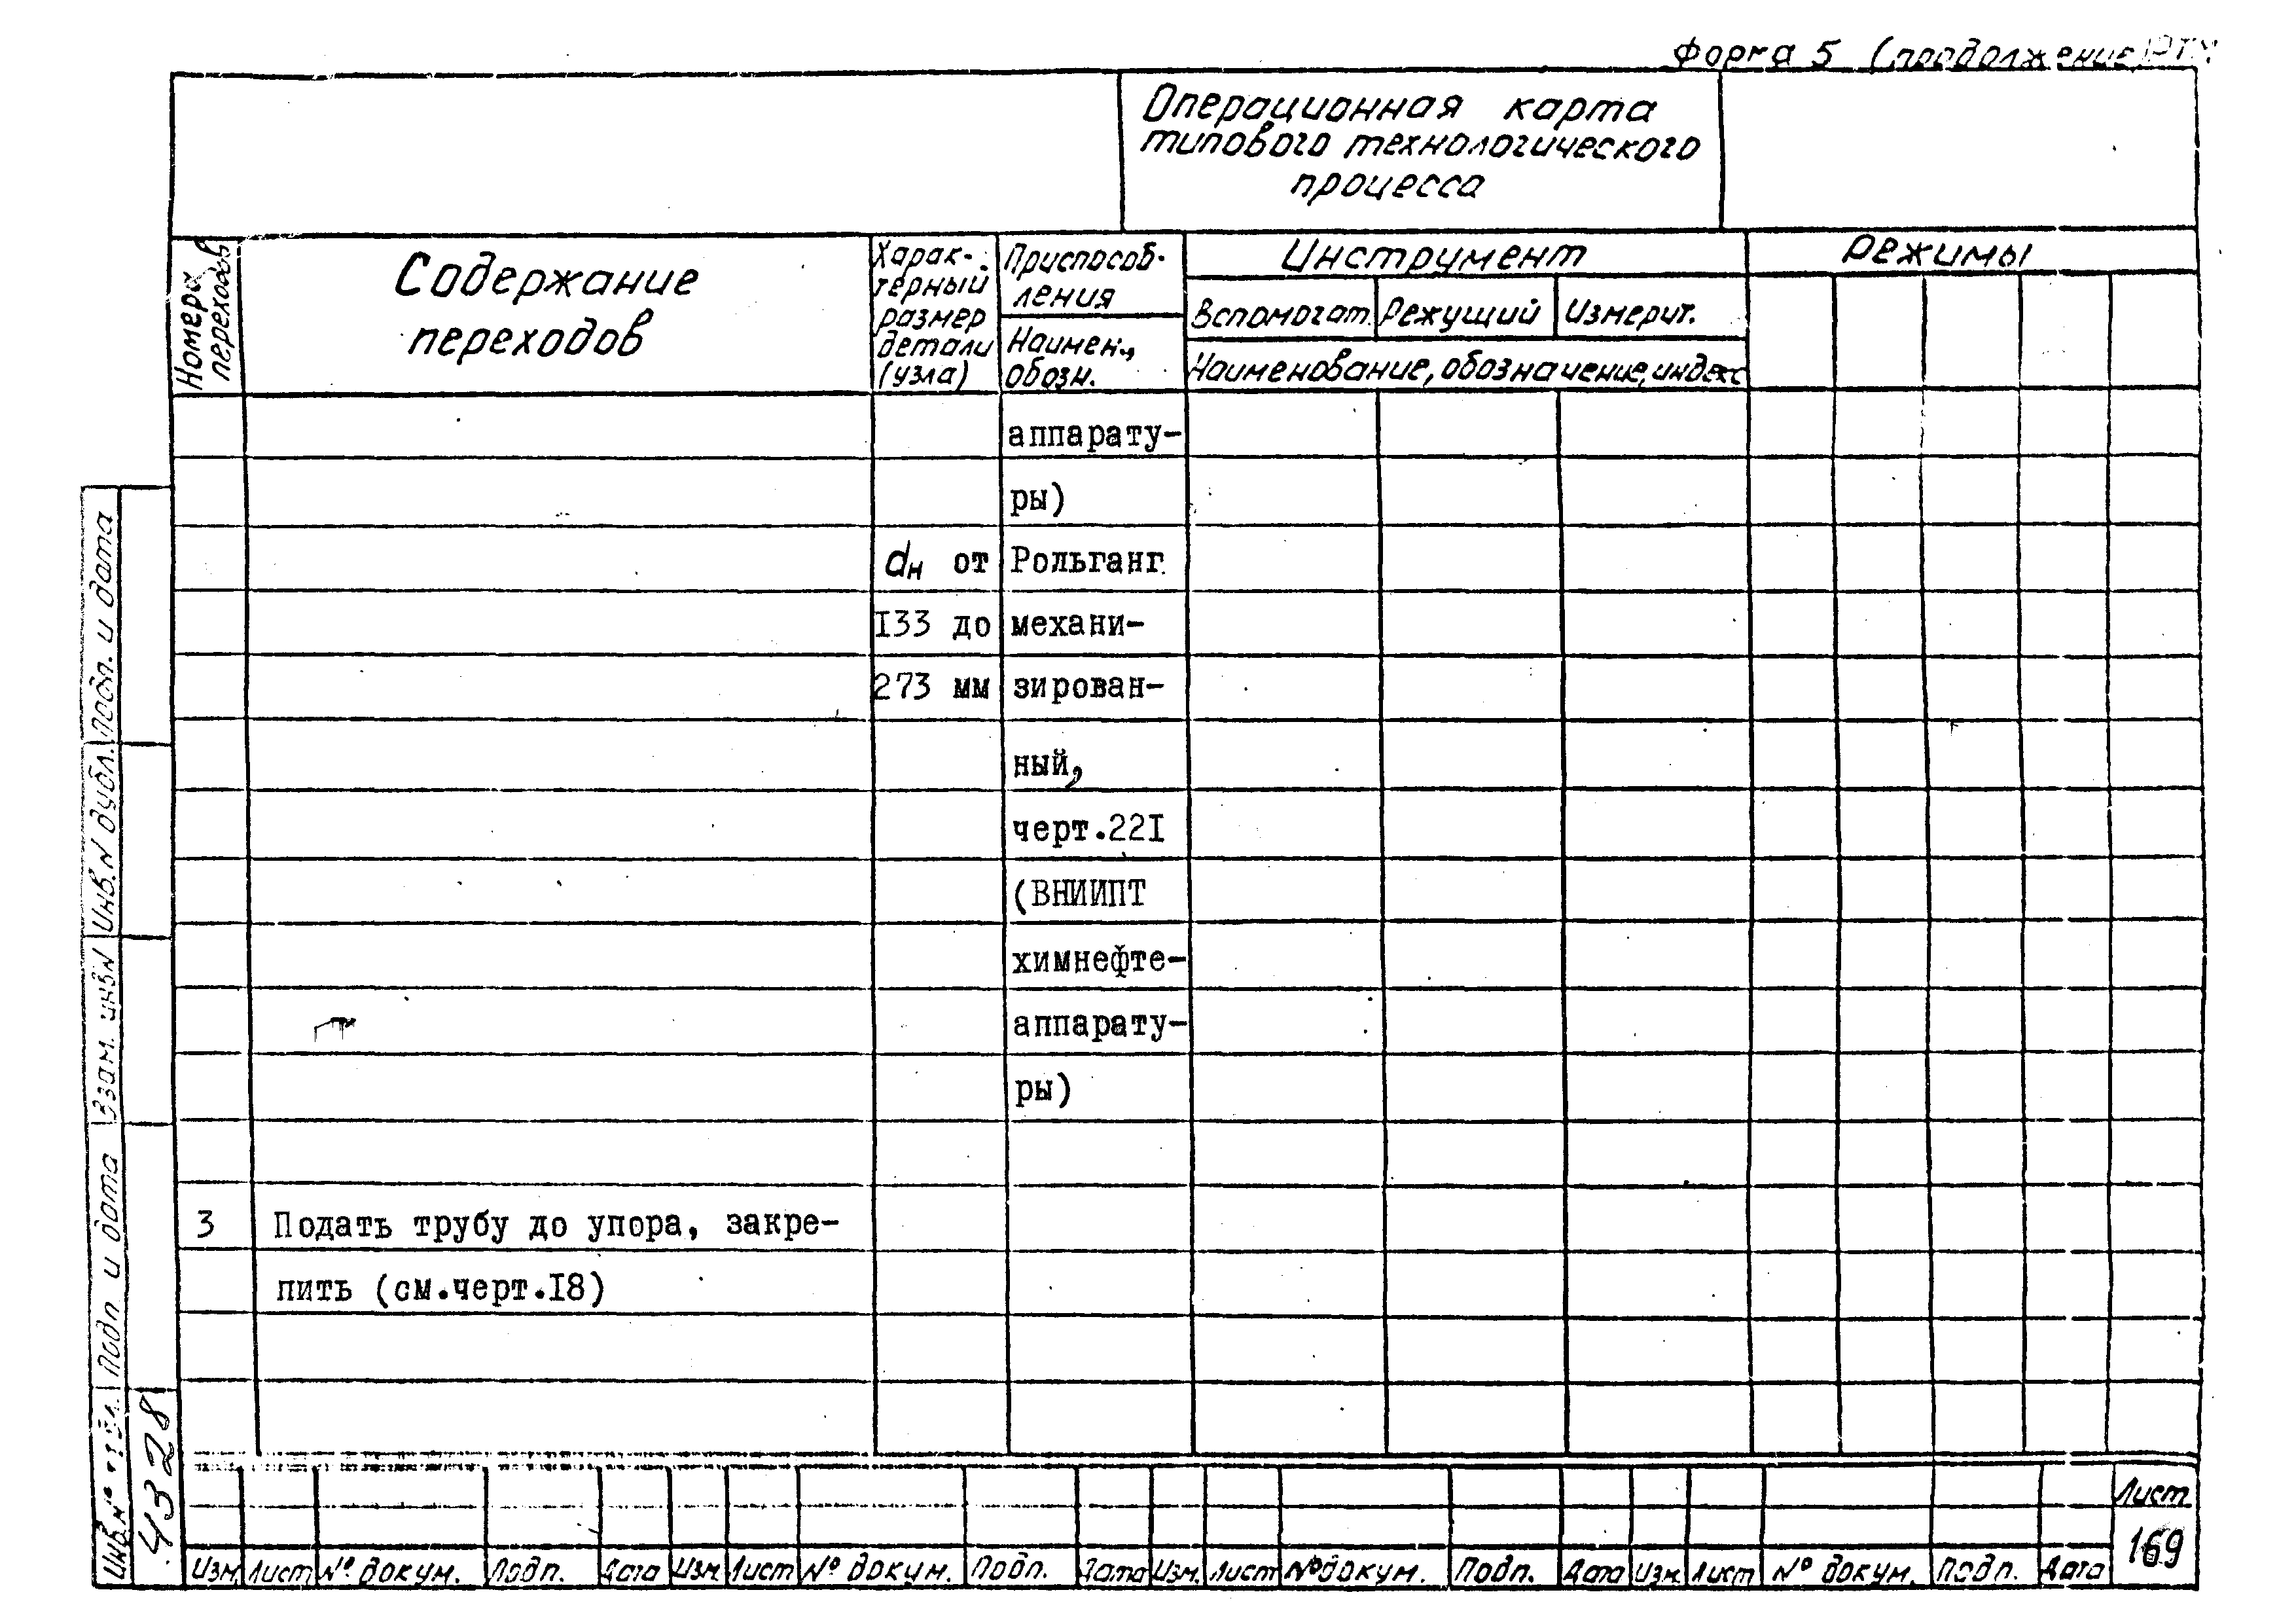 Форма 5 (продолжение)
Операционная карта
типового технологического
процесса
Номера
переходов
Содержание
переходов
Харак-
терный
размер
детали
(узла)
Приспособ-
ления
Наимен.,
обозн.
Инструмент
Вспомогат. Режущий Измерит.
Наименование, обозначение, индекс
Режимы
аппарату-
ры)
dн от Рольганг
I33 до механи-
273 мм зирован-
ный,
черт.22I
(ВНИИПТ
химнефте-
аппарату-
ры)
3 Подать трубу до упора, закре-
пить (см.черт.I8)
Подп. и дата
Инв. N дубл.
Взам. инв N
Подп и дата
Инв. №
4328
Лист
169
Изм Лист № докум. Подп. Дата Изм Лист № докум. Подп. Дата Изм. Лист № докум. Подп. Дата Изм. Лист № докум. Подп. Дата